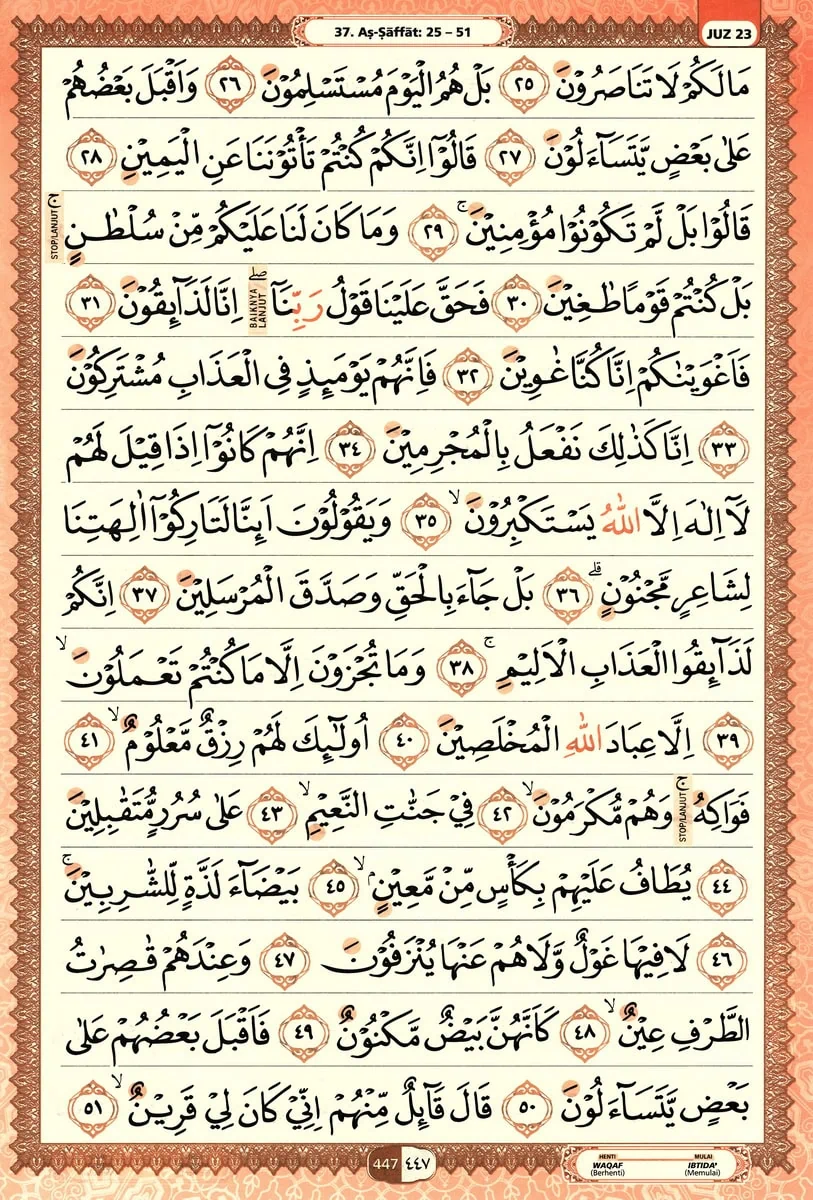 37. Aṣ-Ṣāffāt: 25 – 51
JUZ 23
مَا لَكُمْ لَا تَنَاصَرُوْنَ ٢٥ بَلْ هُمُ الْيَوْمَ مُسْتَسْلِمُوْنَ ٢٦ وَاَقْبَلَ بَعْضُهُمْ
عَلٰى بَعْضٍ يَّتَسَاۤءَلُوْنَ ٢٧ قَالُوْٓا اِنَّكُمْ كُنْتُمْ تَأْتُوْنَنَا عَنِ الْيَمِيْنِ ٢٨
قَالُوْا بَلْ لَّمْ تَكُوْنُوْا مُؤْمِنِيْنَۚ ٢٩ وَمَا كَانَ لَنَا عَلَيْكُمْ مِّنْ سُلْطٰنٍۚ STOP/LANJUT
بَلْ كُنْتُمْ قَوْمًا طٰغِيْنَ ٣٠ فَحَقَّ عَلَيْنَا قَوْلُ رَبِّنَآۖ BAIKNYA LANJUT اِنَّا لَذَاۤىِٕقُوْنَ ٣١
فَاَغْوَيْنٰكُمْ اِنَّا كُنَّا غٰوِيْنَ ٣٢ فَاِنَّهُمْ يَوْمَىِٕذٍ فِى الْعَذَابِ مُشْتَرِكُوْنَ
٣٣ اِنَّا كَذٰلِكَ نَفْعَلُ بِالْمُجْرِمِيْنَ ٣٤ اِنَّهُمْ كَانُوْٓا اِذَا قِيْلَ لَهُمْ
لَآ اِلٰهَ اِلَّا اللّٰهُ يَسْتَكْبِرُوْنَۙ ٣٥ وَيَقُوْلُوْنَ اَىِٕنَّا لَتَارِكُوْٓا اٰلِهَتِنَا
لِشَاعِرٍ مَّجْنُوْنٍۗ ٣٦ بَلْ جَاۤءَ بِالْحَقِّ وَصَدَّقَ الْمُرْسَلِيْنَ ٣٧ اِنَّكُمْ
لَذَاۤىِٕقُوا الْعَذَابِ الْاَلِيْمِۚ ٣٨ وَمَا تُجْزَوْنَ اِلَّا مَا كُنْتُمْ تَعْمَلُوْنَۙ
٣٩ اِلَّا عِبَادَ اللّٰهِ الْمُخْلَصِيْنَ ٤٠ اُولٰۤىِٕكَ لَهُمْ رِزْقٌ مَّعْلُوْمٌۙ ٤١
فَوَاكِهُۚ STOP/LANJUT وَهُمْ مُّكْرَمُوْنَۙ ٤٢ فِيْ جَنّٰتِ النَّعِيْمِۙ ٤٣ عَلٰى سُرُرٍ مُّتَقٰبِلِيْنَ
٤٤ يُطَافُ عَلَيْهِمْ بِكَأْسٍ مِّنْ مَّعِيْنٍۢۙ ٤٥ بَيْضَاۤءَ لَذَّةٍ لِّلشّٰرِبِيْنَۚ
٤٦ لَا فِيْهَا غَوْلٌ وَّلَا هُمْ عَنْهَا يُنْزَفُوْنَ ٤٧ وَعِنْدَهُمْ قٰصِرٰتُ
الطَّرْفِ عِيْنٌۙ ٤٨ كَاَنَّهُنَّ بَيْضٌ مَّكْنُوْنٌ ٤٩ فَاَقْبَلَ بَعْضُهُمْ عَلٰى
بَعْضٍ يَّتَسَاۤءَلُوْنَ ٥٠ قَالَ قَاۤىِٕلٌ مِّنْهُمْ اِنِّيْ كَانَ لِيْ قَرِيْنٌۙ ٥١
447 ٤٤٧
HENTI WAQAF (Berhenti)
MULAI IBTIDA' (Memulai)